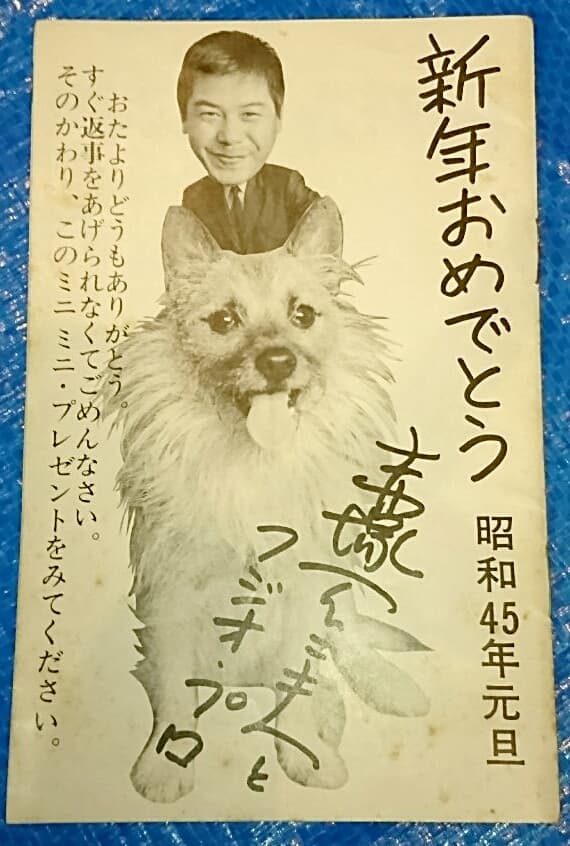 新年おめでとう
昭和45年元旦
赤塚
フジオ・プロ
おたよりどうもありがとう。
すぐ返事をあげられなくてごめんなさい。
そのかわり、このミニ ミニ・プレゼントをみてください。